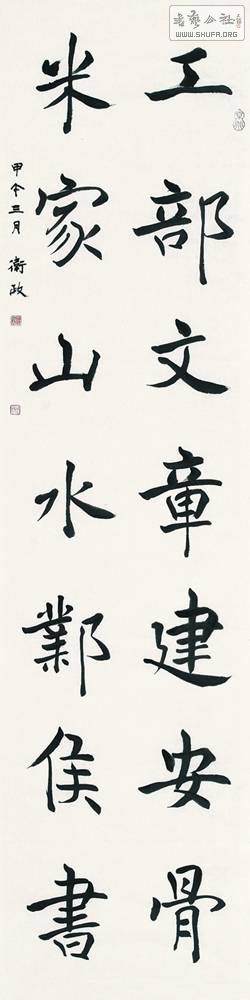 工部文章建安骨
米家山水鄴侯書
甲午三月 衛政
书艺公社
WWW.SHUFA.ORG